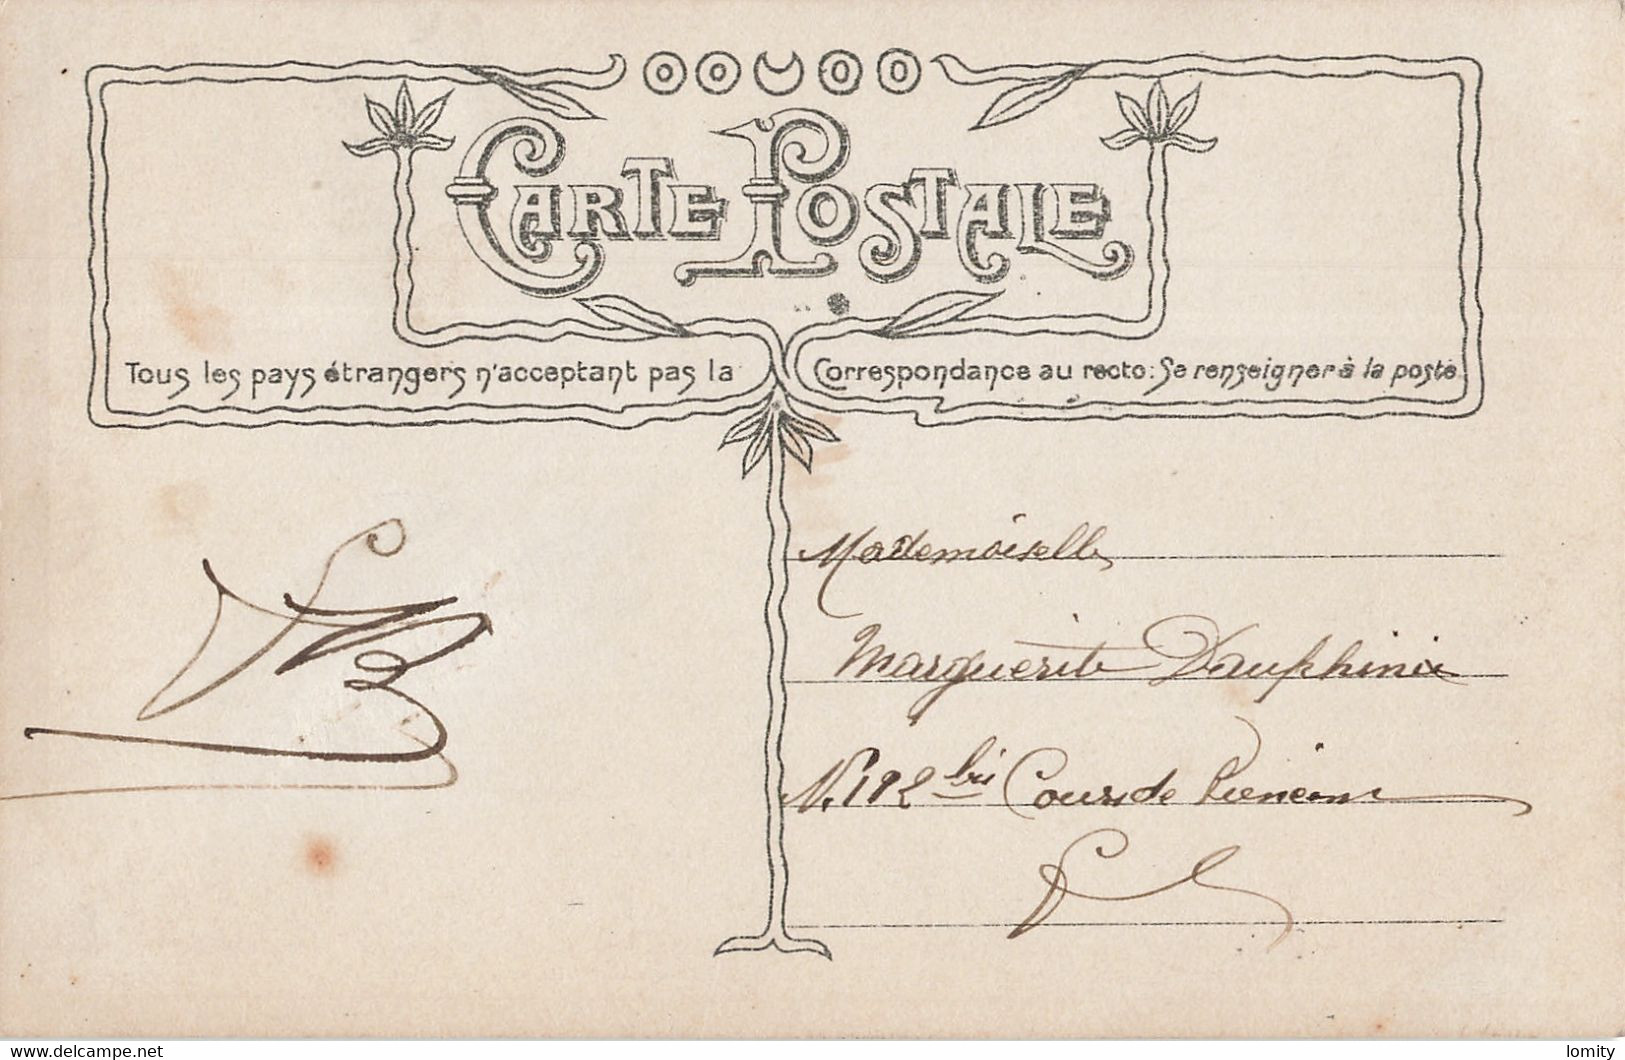 CARTE POSTALE
Tous les pays étrangers n'acceptant pas la Correspondance au recto: Se renseigner à la poste
Mademoiselle
Marguerite
N. 192 bis Cours de
www.delcampe.net
lomity